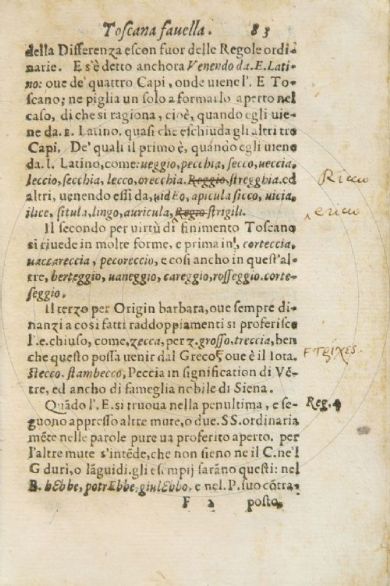 Toscana fauella. 83
della Differenza escon fuor delle Regole ordi-
narie. E s'è detto anchora Venendo da. E. Lati-
no: oue de' quattro Capi, onde uiene l'. E To-
scano; ne piglia un solo a formarlo aperto nel
caso, di che si ragiona, cioè, quando egli uie-
ne da. E. Latino, quasi che eschiuda gli altri tre
Capi. De' quali il primo è, quando egli uiene
da. I. Latino, come: ueggio, pecchia, secco, ueccia,
leccio, secchia, lecco, orecchia. Reggio, stregghia. ed
Ricco
altri, uenendo essi da, uidEo, apicula sicco, uicia,
ilice, situla, lingo, auricula, Regio strigili.
Il secondo per uirtù di finimento Toscano
si riuede in molte forme, e prima in, corteccia,
uaccareccia, pecoreccio, e cosi ancho in quest'al-
tre, herteggio, uaneggio, careggio, rosseggio. corte-
seggio.
Il terzo per Origin barbara, oue sempre di-
nanzi a cosi fatti raddoppiamenti si proferisce
l'. e. chiuso, come, zecca, per z. grosso. treccia, ben
che questo possa uenir dal Greco, oue è il Iota.
Stecco. stambecco, Peccia in signification di Vē-
tre, ed ancho di fameglia nobile di Siena.
Quādo l'. E. si truoua nella penultima, e se-
Reg. 4
guono appresso altre mute, o due. SS. ordinaria
mēte nelle parole pure ua proferito aperto. per
l'altre mute s'intēde, che non sieno ne il C. ne'l
G duri, o lāguidi. gli esempij sarāno questi: nel
B. hEbbe, potrEbbe, giulEbbo. e nel. P. suo cōtra-
F 2 posto.